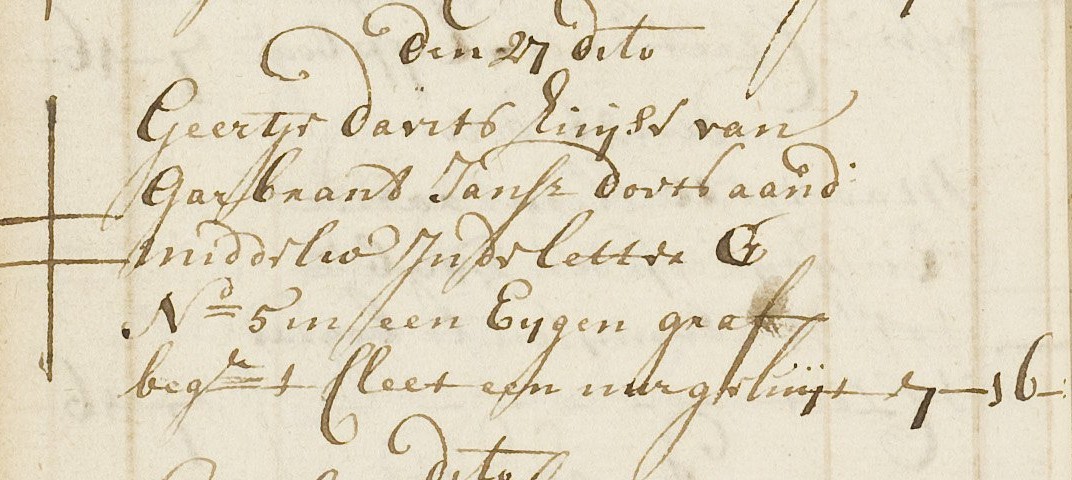 den 27 dito
Geertje Davits huijsv van
Garbrant Jansz dorts aand
middelw Inde letter G
No 5 in een Eijgen graf
begr t Cleet een uur geluijt 7-16-
dito